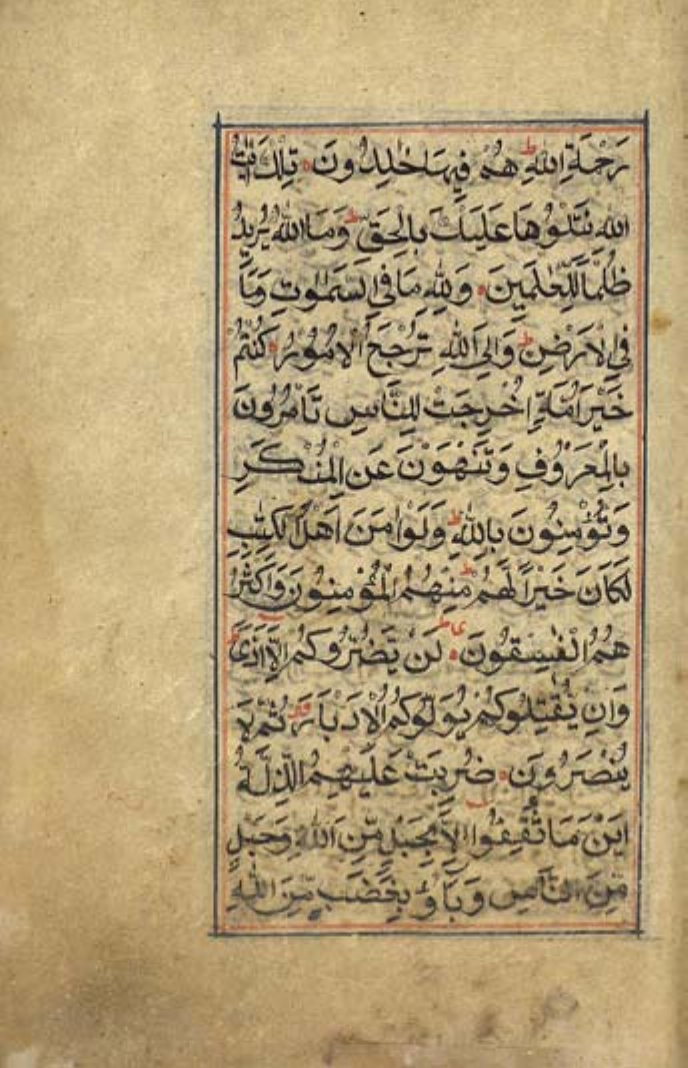 رَحْمَةِ اللّٰهِ ط هُمْ فِيهَا خٰلِدُونَ ۰ تِلْكَ اٰيٰتُ
اللّٰهِ نَتْلُوْهَا عَلَيْكَ بِالْحَقِّ ط وَمَا اللّٰهُ يُرِيدُ
ظُلْمًا لِّلْعٰلَمِينَ ۰ وَلِلّٰهِ مَا فِي السَّمٰوٰتِ وَمَا
فِي الْاَرْضِ ط وَاِلَى اللّٰهِ تُرْجَعُ الْاُمُوْرُ ۰ كُنْتُمْ
خَيْرَ اُمَّةٍ اُخْرِجَتْ لِلنَّاسِ تَاْمُرُوْنَ
بِالْمَعْرُوْفِ وَتَنْهَوْنَ عَنِ الْمُنْكَرِ
وَتُؤْمِنُوْنَ بِاللّٰهِ ط وَلَوْ اٰمَنَ اَهْلُ الْكِتٰبِ
لَكَانَ خَيْرًا لَّهُمْ ط مِنْهُمُ الْمُؤْمِنُوْنَ وَاَكْثَرُ
هُمُ الْفٰسِقُوْنَ ۰ لَنْ يَّضُرُّوْكُمْ اِلَّا اَذًى ط
وَاِنْ يُّقٰتِلُوْكُمْ يُوَلُّوْكُمُ الْاَدْبَارَ ثُمَّ لَا
يُنْصَرُوْنَ ۰ ضُرِبَتْ عَلَيْهِمُ الذِّلَّةُ
اَيْنَ مَا ثُقِفُوْا اِلَّا بِحَبْلٍ مِّنَ اللّٰهِ وَحَبْلٍ
مِّنَ النَّاسِ وَبَاؤُ بِغَضَبٍ مِّنَ اللّٰهِ